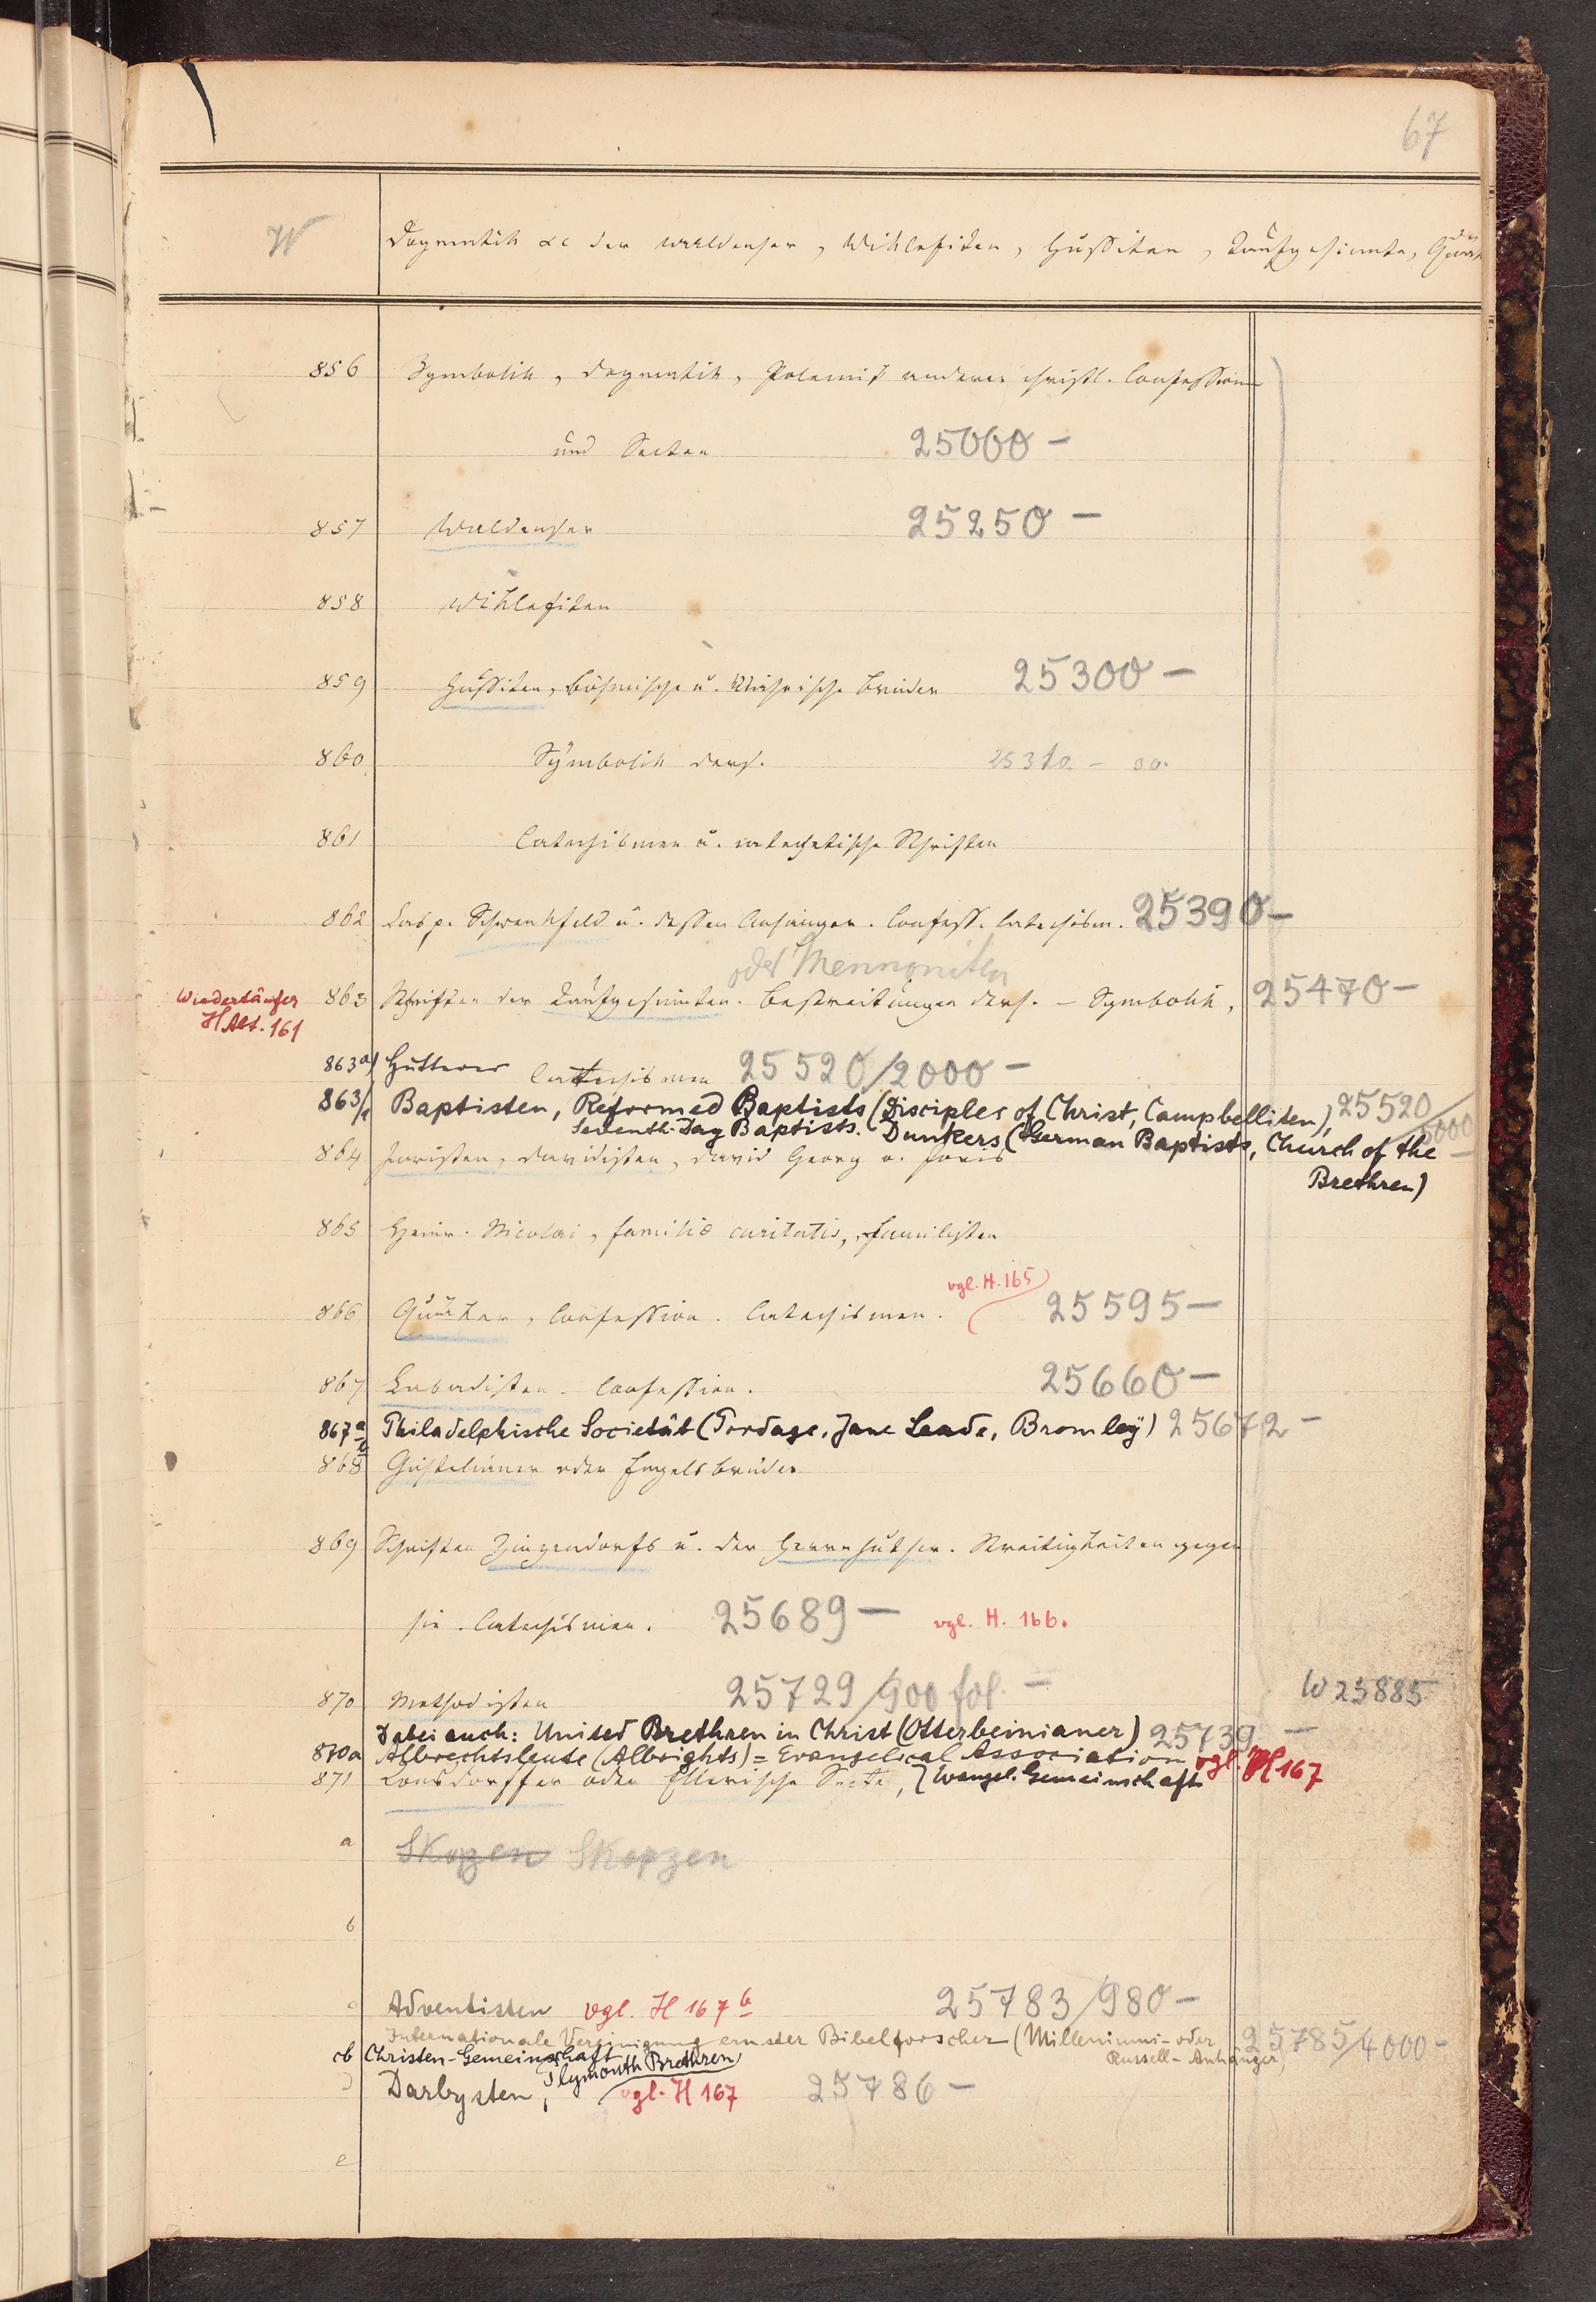 67
W
Dogmatik &c der Waldenser, Wiklefiten, Hussiten, Taufgesinnte, Quäk
856 Symbolik, Dogmatik, Polemik anderer christl. Confessionen
und Secten 25000 –
857 Waldenser 25250 –
858 Wiklefiten
859 Hussiten, böhmische u. Mährische Brüder 25300 –
860 Symbolik ders. 25310 –
861 Catechismen u. catechetische Schriften
862 Casp. Schwenkfeld u. dessen Anhänger. Confess. Catechism. 25390 –
oder Mennoniten
Wiedertäufer 863 Schriften der Taufgesinnten. Bestreitungen ders. – Symbolik, 25470 –
H Alt. 161
863a) Hutterer Catechismen 25520/2000 –
863/b Baptisten, Reformed Baptists (Disciples of Christ, Campbelliten), 25520/5000 –
Seventh-Day Baptists. Dunkers (German Baptists, Church of the
Brethren)
864 Joristen, Davidisten, David Georg o. Joris
865 Heinr. Nicolai, familia caritatis, Familisten
vgl. H. 165
866 Quäker, Confession. Catechismen. 25595 –
867 Labadisten. Confession. 25660 –
867a Philadelphische Societät (Pordage, Jane Leade, Bromley) 25672 –
868 Gichtelianer oder Engelsbrüder
869 Schriften Zinzendorfs u. der Herrnhuther. Streitigkeiten gegen
sie. Catechismen. 25689 – vgl. H. 166.
870 Methodisten 25729/900 fol. – W 25885
Dabei auch: United Brethren in Christ (Otterbeinianer) 25739 –
870a Albrechtsleute (Albrights) = Evangelical Association vgl. H 167
871 Ronsdorffer oder Ellerische Secte, } Evangel. Gemeinschaft
a Skopzen Skopzen
b
c Adventisten vgl. H 167 b 25783/980 –
Internationale Vereinigung ernster Bibelforscher (Milleniums- oder 25785/4000 –
Russell-Anhänger)
cb Christen-Gemeinschaft
Plymouth Brethren
d Darbysten, vgl. H 167 25786 –
e